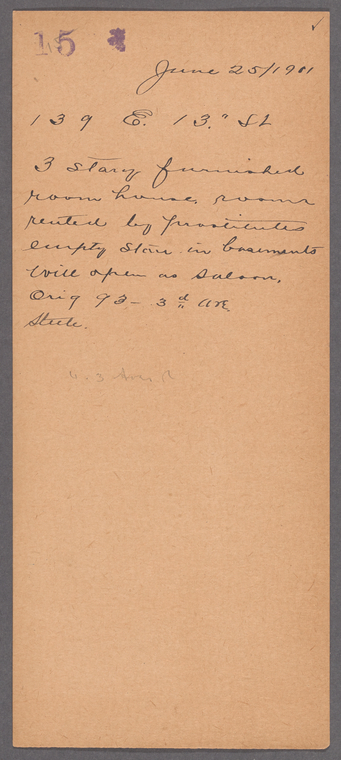 15
June 25/1911
139 E. 13." St
3 story furnished
room house, rooms
rented by prostitutes
empty store in basements
will open as saloon,
Orig 93 - 3d Ave.